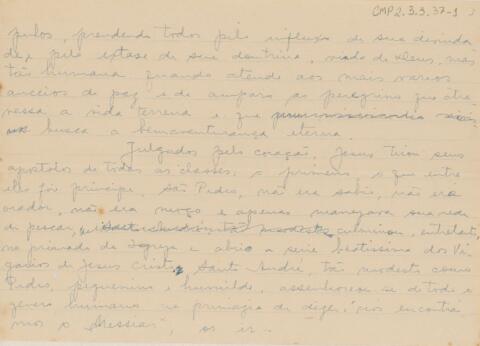 CMP2.3.3.37-1
pulos, prendendo todos pelo influxo de sua divinda
de, pelo extase de sua doutrina, vinda de Deus, mas
tão humana quando atende aos mais varios
anceios de paz e de amparo ao peregrino que atra
vessa a vida terrena e que
busca a bemaventurança eterna.
Julgados pelo coração, Jesus tirou seus
apostolos de todas as classes: o primeiro, o que entre
elles foi principe, São Pedro, não era sabio, não era
orador, não era moço e apenas manejava sua rede
de pescar, culminou, entretanto,
no primado da Igreja e abrio a serie beatissima dos Vi
garios de Jesus Cristo, Santo André, tão modesto como
Pedro, pequenino e humilde, assenhoreou-se de todo o
genero humano na primazia de dizer, "nós encontrá
mos o Messias",